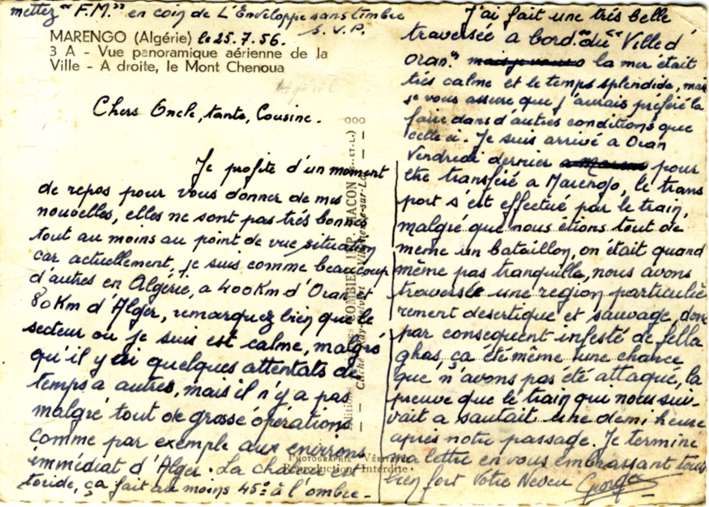 mettez "F.M." en coin de L'Enveloppe sans timbre
S.V.P.
MARENGO (Algérie) le 25.7.56.
3 A - Vue panoramique aérienne de la
Ville - A droite, le Mont Chenoua
Chers Oncle, tante, Cousine.
Je profite d'un moment
de repos pour vous donner de mes
nouvelles, elles ne sont pas très bonnes
tout au moins au point de vue situation
car actuellement, je suis comme beaucoup
d'autres en Algérie, a 400Km d'Oran et
80Km d'Alger, remarquez bien que le
secteur ou je suis est calme, malgré
qu'il y ai quelques attentats de
temps a autres, mais il n'y a pas
malgré tout de grosse opérations
comme par exemple aux environs
immédiat d'Alger. La chaleur est
toride, ça fait au moins 45° à l'ombre-
J'ai fait une très belle
traversée a bord "du Ville d'
Oran" la mer était
très calme et le temps splendide, mais
je vous assure que j'aurais préféré la
faire dans d'autres conditions que
celle ci. Je suis arrivé a Oran
Vendredi dernier pour
être transféré a Marengo, le trans
port s'est effectué par le train,
malgré que nous étions tout de
meme un bataillon, on était quand
même pas tranquille, nous avons
traversée une region particuliè
rement desertique et sauvage, donc
par consequent infesté de fella
ghas, ça été même une chance
que n'avons pas été attaqué, la
preuve que le train qui nous sui-
vait a sautait une demi heure
après notre passage. Je termine
ma lettre en vous embrassant tous
bien fort Votre Neveu Georges
Reproduction Interdite